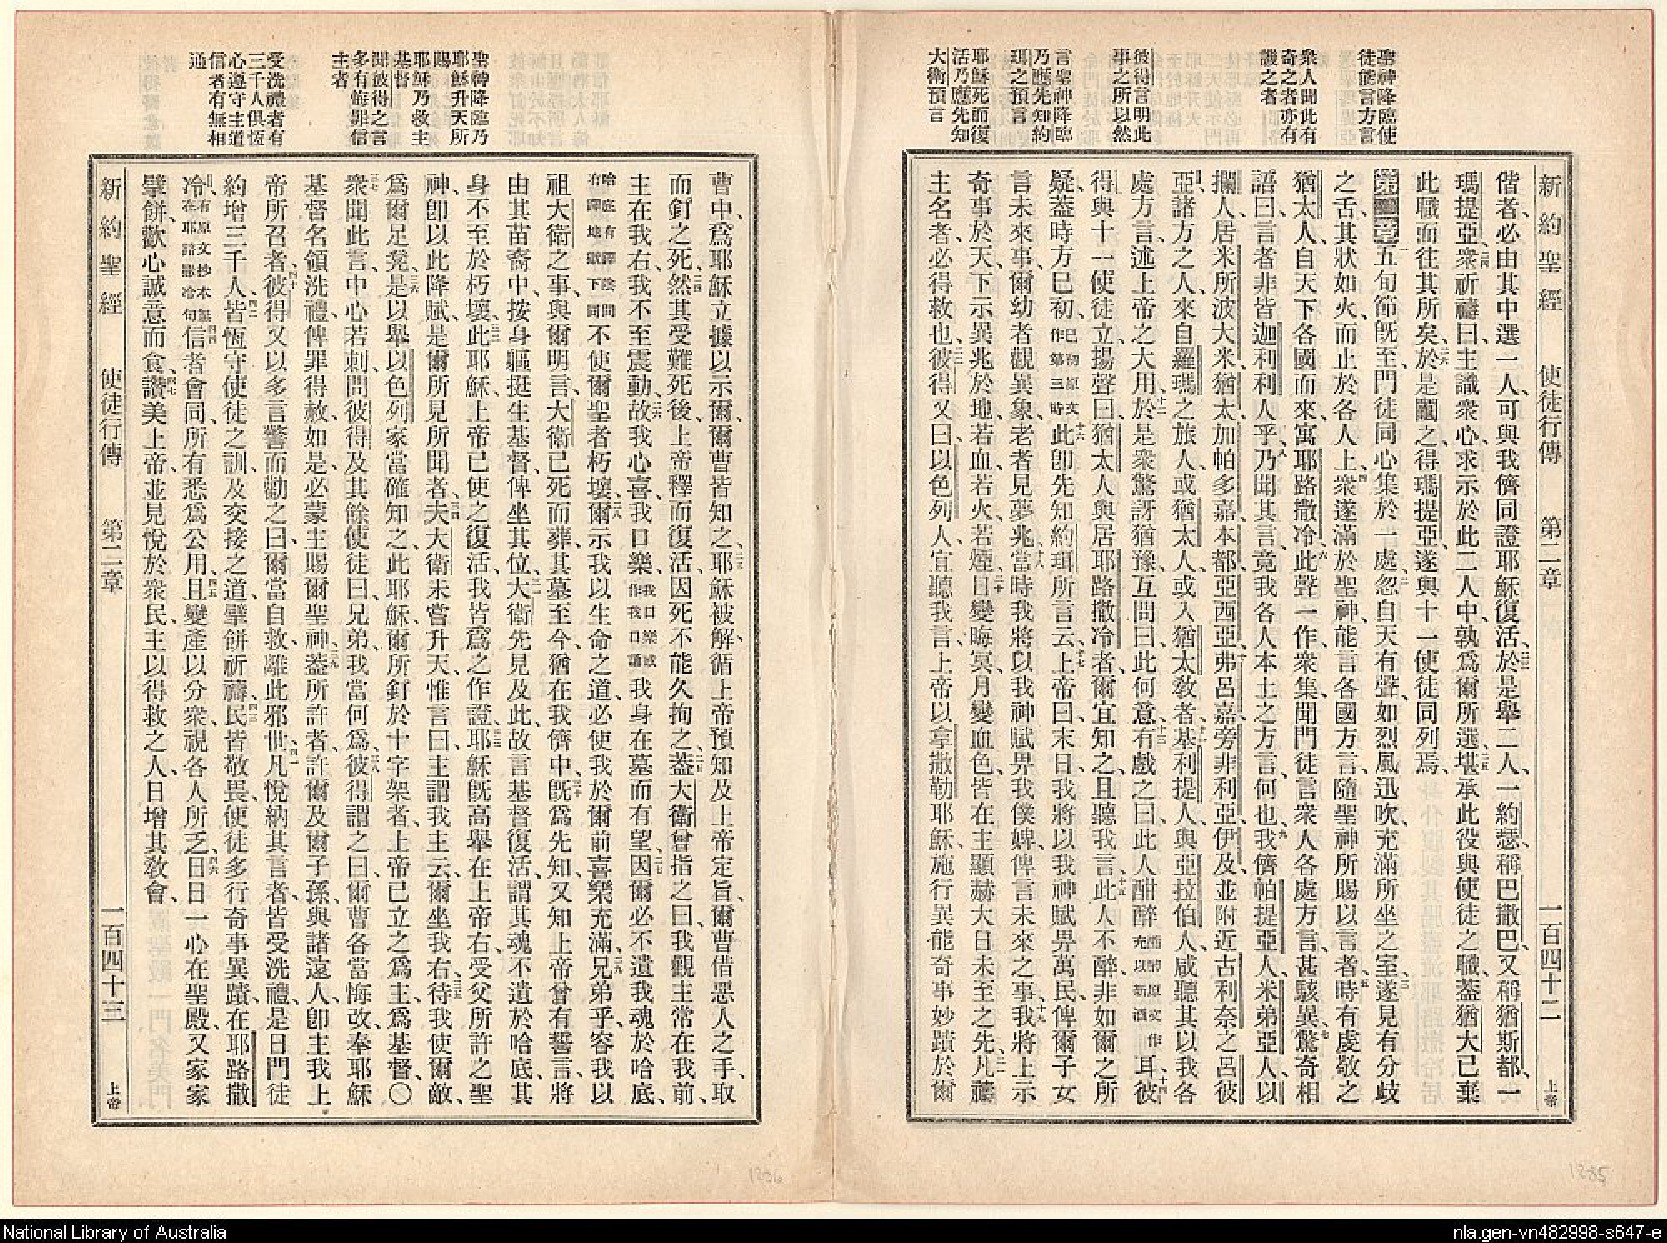 新約聖經 使徒行傳 第二章 一百四十二 上帝
聖神降臨使
徒能言方言
衆人聞此有
奇之者亦有
譏之者
彼得言明此
事之所以然
言聖神降臨
乃應先知約
珥之預言
耶穌死而復
活乃應先知
大衛預言
偕者、必由其中選一人、可與我儕同證耶穌復活、二三於是舉二人、一約瑟、稱巴撒巴、又稱猶斯都、一
瑪提亞、二四衆祈禱曰、主識衆心、求示於此二人中、孰爲爾所選、二五堪承此役與使徒之職、蓋猶大已棄
此職而往其所矣、二六於是鬮之、得瑪提亞、遂與十一使徒同列焉、
第二章 一五旬節旣至、門徒同心集於一處、二忽自天有聲、如烈風迅吹、充滿所坐之室、三遂見有分歧
之舌、其狀如火、而止於各人上、四衆遂滿於聖神、能言各國方言、隨聖神所賜以言者、五時有虔敬之
猶太人、自天下各國而來、寓耶路撒冷、六此聲一作、衆集、聞門徒言衆人各處方言、甚駭異、七驚奇相
語曰、言者非皆迦利利人乎、八乃聞其言、竟我各人本土之方言、何也、九我儕帕提亞人、米弟亞人、以
攔人、居米所波大米、猶太、加帕多嘉、本都、亞西亞、十弗呂嘉、旁非利亞、伊及、並附近古利奈之呂彼
亞諸方之人、來自羅瑪之旅人、或猶太人、或入猶太敎者、十一基利提人與亞拉伯人、咸聽其以我各
處方言、述上帝之大用、十二於是衆驚訝猶豫、互問曰、此何意、十三有戲之曰、此人酣醉 酣醉原文作充以新酒 耳、十四彼
得與十一使徒立、揚聲曰、猶太人與居耶路撒冷者、爾宜知之、且聽我言、十五此人不醉、非如爾之所
疑、蓋時方巳初、巳初原文作第三時 十六此卽先知約珥所言云、十七上帝曰、末日我將以我神賦畀萬民、俾爾子女
言未來事、爾幼者觀異象、老者見夢兆、十八當時我將以我神賦畀我僕婢、俾言未來之事、十九我將上示
奇事於天、下示異兆於地、若血、若火、若煙、二十日變晦冥、月變血色、皆在主顯赫大日未至之先、二一凡籲
主名者、必得救也、二二彼得又曰、以色列人、宜聽我言、上帝以拿撒勒耶穌、施行異能奇事妙蹟於爾
聖神降臨乃
耶穌升天所
賜
耶穌乃救主
基督
聞彼得之言
多有悔罪信
主者
受洗禮者有
三千人俱恆
心遵守主道
信者有無相
通
曹中、爲耶穌立據以示爾、爾曹皆知之、二三耶穌被解、循上帝預知及上帝定旨、爾曹借惡人之手、取
而釘之死、二四然其受難死後、上帝釋而復活、因死不能久拘之、二五蓋大衛曾指之曰、我觀主常在我前、
主在我右、我不至震動、二六故我心喜、我口樂、我口樂或作我口誦 我身在墓而有望、二七因爾必不遺我魂於哈底、
哈底有譯陰間有譯地獄下同 不使爾聖者朽壞、二八爾示我以生命之道、必使我於爾前喜樂充滿、二九兄弟乎、容我以
祖大衛之事、與爾明言、大衛已死而葬、其墓至今猶在我儕中、三十旣爲先知、又知上帝曾有誓言、將
由其苗裔中、按身軀挺生基督、俾坐其位、三一大衛先見及此、故言基督復活、謂其魂不遺於哈底、其
身不至於朽壞、三二此耶穌、上帝已使之復活、我皆爲之作證、三三耶穌旣高舉在上帝右、受父所許之聖
神、卽以此降賦、是爾所見所聞者、三四夫大衛未嘗升天、惟言曰、主謂我主云、爾坐我右、三五待我使爾敵、
爲爾足凳、三六是以舉以色列家、當確知之、此耶穌、爾所釘於十字架者、上帝已立之爲主、爲基督、〇
三七衆聞此言、中心若刺、問彼得及其餘使徒曰、兄弟、我當何爲、三八彼得謂之曰、爾曹各當悔改、奉耶穌
基督名領洗禮、俾罪得赦、如是必蒙主賜爾聖神、三九蓋所許者、許爾及爾子孫、與諸遠人、卽主我上
帝所召者、四十彼得又以多言警而勸之曰、爾當自救、離此邪世、四一凡悅納其言者、皆受洗禮、是日門徒
約增三千人、四二皆恆守使徒之訓、及交接之道、擘餅祈禱、四三民皆敬畏、使徒多行奇事異蹟、在耶路撒
冷、有原文抄本無在耶路撒冷句 四四信者會同、所有悉爲公用、四五且變產以分衆、視各人所乏、四六日日一心在聖殿、又家家
擘餅、歡心誠意而食、四七讚美上帝、並見悅於衆民、主以得救之人、日增其敎會、
新約聖經 使徒行傳 第二章 一百四十三 上帝
1286
1285
National Library of Australia
nla.gen-vn482998-s647-e